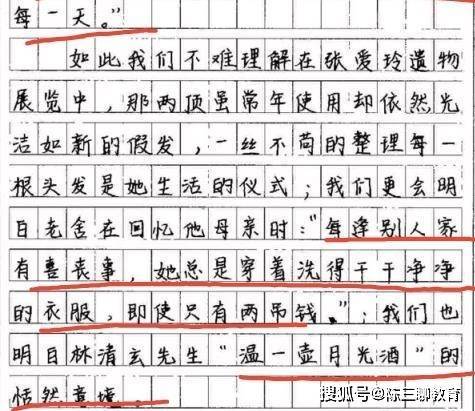 每一天。”
如此我们不难理解在张爱玲遗物
展览中，那两顶虽常年使用却依然光
洁如新的假发，一丝不苟的整理每一
根头发是她生活的仪式；我们更会明
白老舍在回忆他母亲时：“每逢别人家
有喜丧事，她总是穿着洗得干干净净
的衣服，即使只有两吊钱。”；我们也
明白林清玄先生“温一壶月光酒”的
恬然意境。
搜狐号@陈三聊教育